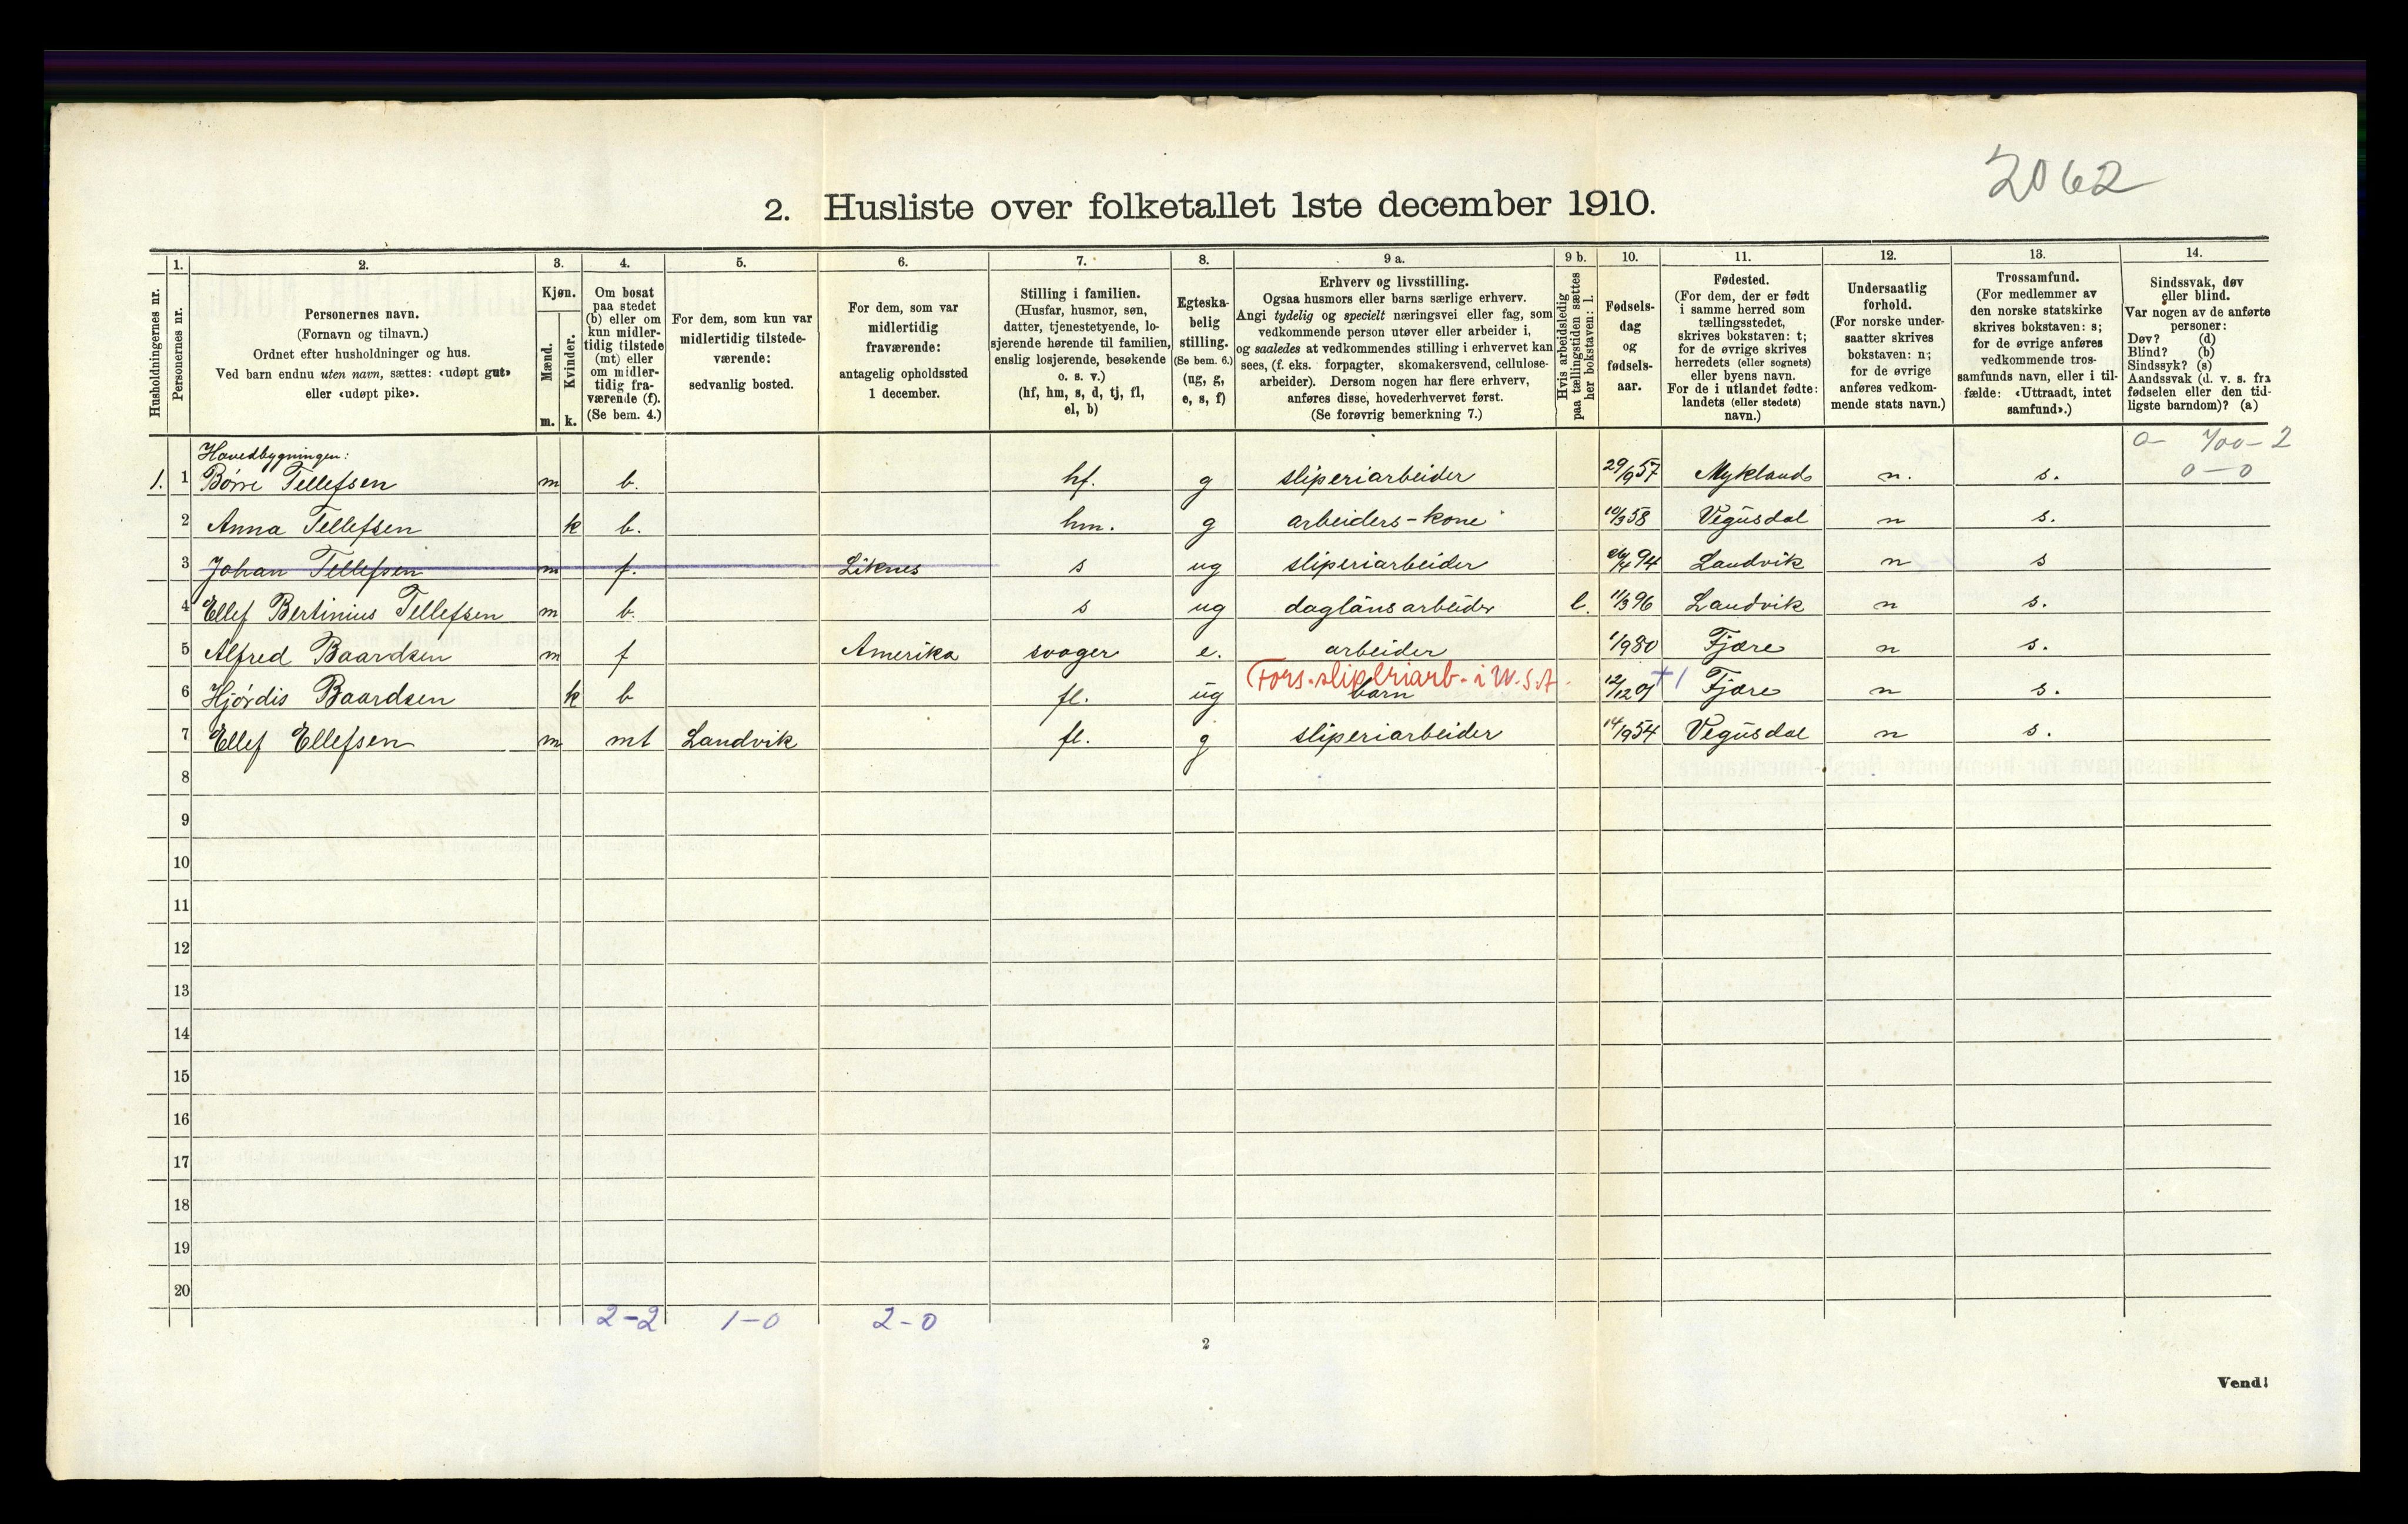 2062
2. Husliste over folketallet 1ste december 1910.
Husholdningernes nr.
1.
Personernes nr.
2.
Personernes navn.
(Fornavn og tilnavn.)
Ordnet efter husholdninger og hus.
Ved barn endnu uten navn, sættes: «udøpt gut»
eller «udøpt pike».
3.
Kjøn.
Mænd.
m.
Kvinder.
k.
4.
Om bosat
paa stedet
(b) eller om
kun midler-
tidig tilstede
(mt) eller
om midler-
tidig fra-
værende (f).
(Se bem. 4.)
5.
For dem, som kun var
midlertidig tilstede-
værende:
sedvanlig bosted.
6.
For dem, som var
midlertidig
fraværende:
antagelig opholdssted
1 december.
7.
Stilling i familien.
(Husfar, husmor, søn,
datter, tjenestetyende, lo-
sjerende hørende til familien,
enslig losjerende, besøkende
o. s. v.)
(hf, hm, s, d, tj, fl,
el, b)
8.
Egteska-
belig
stilling.
(Se bem. 6.)
(ug, g,
e, s, f)
9 a.
Erhverv og livsstilling.
Ogsaa husmors eller barns særlige erhverv.
Angi tydelig og specielt næringsvei eller fag, som
vedkommende person utøver eller arbeider i,
og saaledes at vedkommendes stilling i erhvervet kan
sees, (f. eks. forpagter, skomakersvend, cellulose-
arbeider). Dersom nogen har flere erhverv,
anføres disse, hovederhvervet først.
(Se forøvrig bemerkning 7.)
9 b.
Hvis arbeidsledig
paa tællingstiden sættes
her bokstaven: l.
10.
Fødsels-
dag
og
fødsels-
aar.
11.
Fødested.
(For dem, der er født
i samme herred som
tællingsstedet,
skrives bokstaven: t;
for de øvrige skrives
herredets (eller sognets)
eller byens navn.
For de i utlandet fødte:
landets (eller stedets)
navn.)
12.
Undersaatlig
forhold.
(For norske under-
saatter skrives
bokstaven: n;
for de øvrige
anføres vedkom-
mende stats navn.)
13.
Trossamfund.
(For medlemmer av
den norske statskirke
skrives bokstaven: s;
for de øvrige anføres
vedkommende tros-
samfunds navn, eller i til-
fælde: «Uttraadt, intet
samfund».)
14.
Sindssvak, døv
eller blind.
Var nogen av de anførte
personer:
Døv? (d)
Blind? (b)
Sindssyk? (s)
Aandssvak (d. v. s. fra
fødselen eller den tid-
ligste barndom)? (a)
Hovedbygningen:
1. 1 Børre Tellefsen m b. hf. g sliperiarbeider 29/9 57 Mykland n. s. 0-0
2 Anna Tellefsen k b. hm. g arbeiders-kone 10/3 58 Vegusdal n s.
3 Johan Tellefsen m f. Liknes s ug sliperiarbeider 94 Landvik n s
4 Ellef Bertinius Tellefsen m b. s ug daglønsarbeider l. 11/3 96 Landvik n s.
5 Alfred Baardsen m f Amerika svoger e. arbeider 1/9 80 Fjære n s.
Fors. sliperiarb. i U.S.A.
6 Hjørdis Baardsen k b fl. ug barn 12/12 +1 Fjære n s.
7 Ellef Ellefsen m mt Landvik fl. g sliperiarbeider 14/9 54 Vegusdal n s.
8
9
10
11
12
13
14
15
16
17
18
19
20
2-2 1-0 2-0
2
Vend!